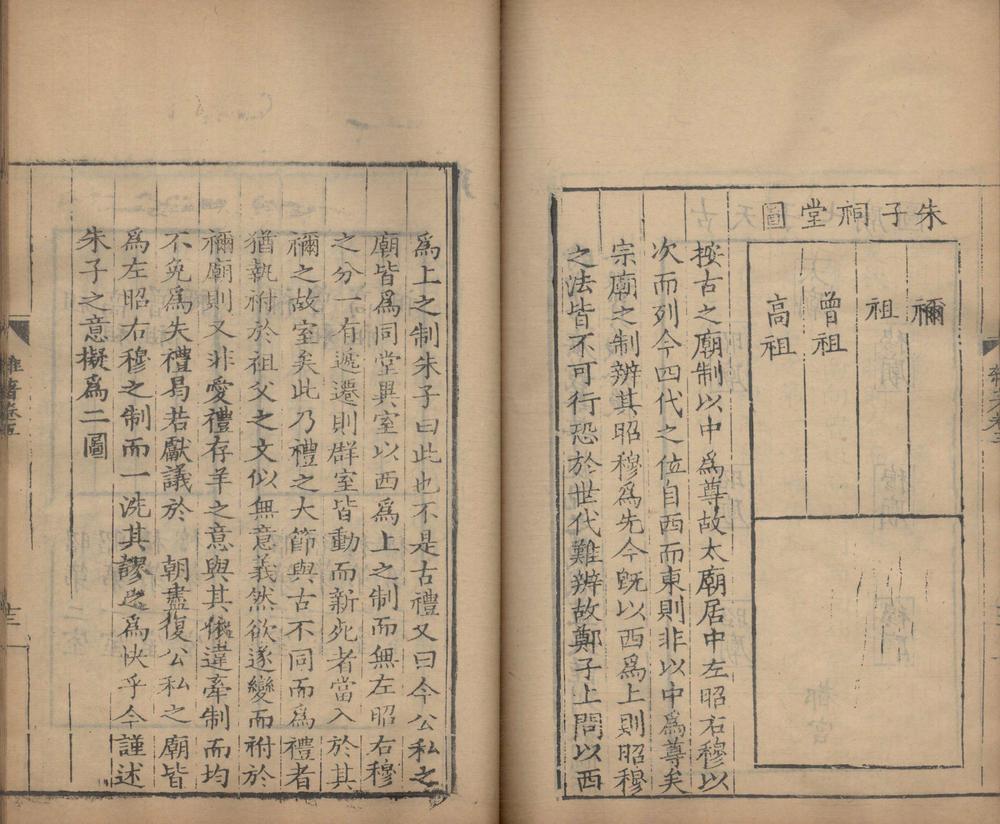 朱子祠堂圖
禰
祖
曾祖
高祖
按古之廟制以中爲尊故太廟居中左昭右穆以
次而列今四代之位自西而東則非以中爲尊矣
宗廟之制辨其昭穆爲先今旣以西爲上則昭穆
之法皆不可行恐於世代難辨故鄭子上問以西
爲上之制朱子曰此也不是古禮又曰今公私之
廟皆爲同堂異室以西爲上之制而無左昭右穆
之分一有遞遷則群室皆動而新死者當入於其
禰之故室矣此乃禮之大節與古不同而爲禮者
猶執祔於祖父之文似無意義然欲遂變而祔於
禰廟則又非愛禮存羊之意與其依違牽制而均
不免爲失禮曷若獻議於 朝盡復公私之廟皆
爲左昭右穆之制而一洗其謬之爲快乎今謹述
朱子之意擬爲二圖
雜著卷五
十三